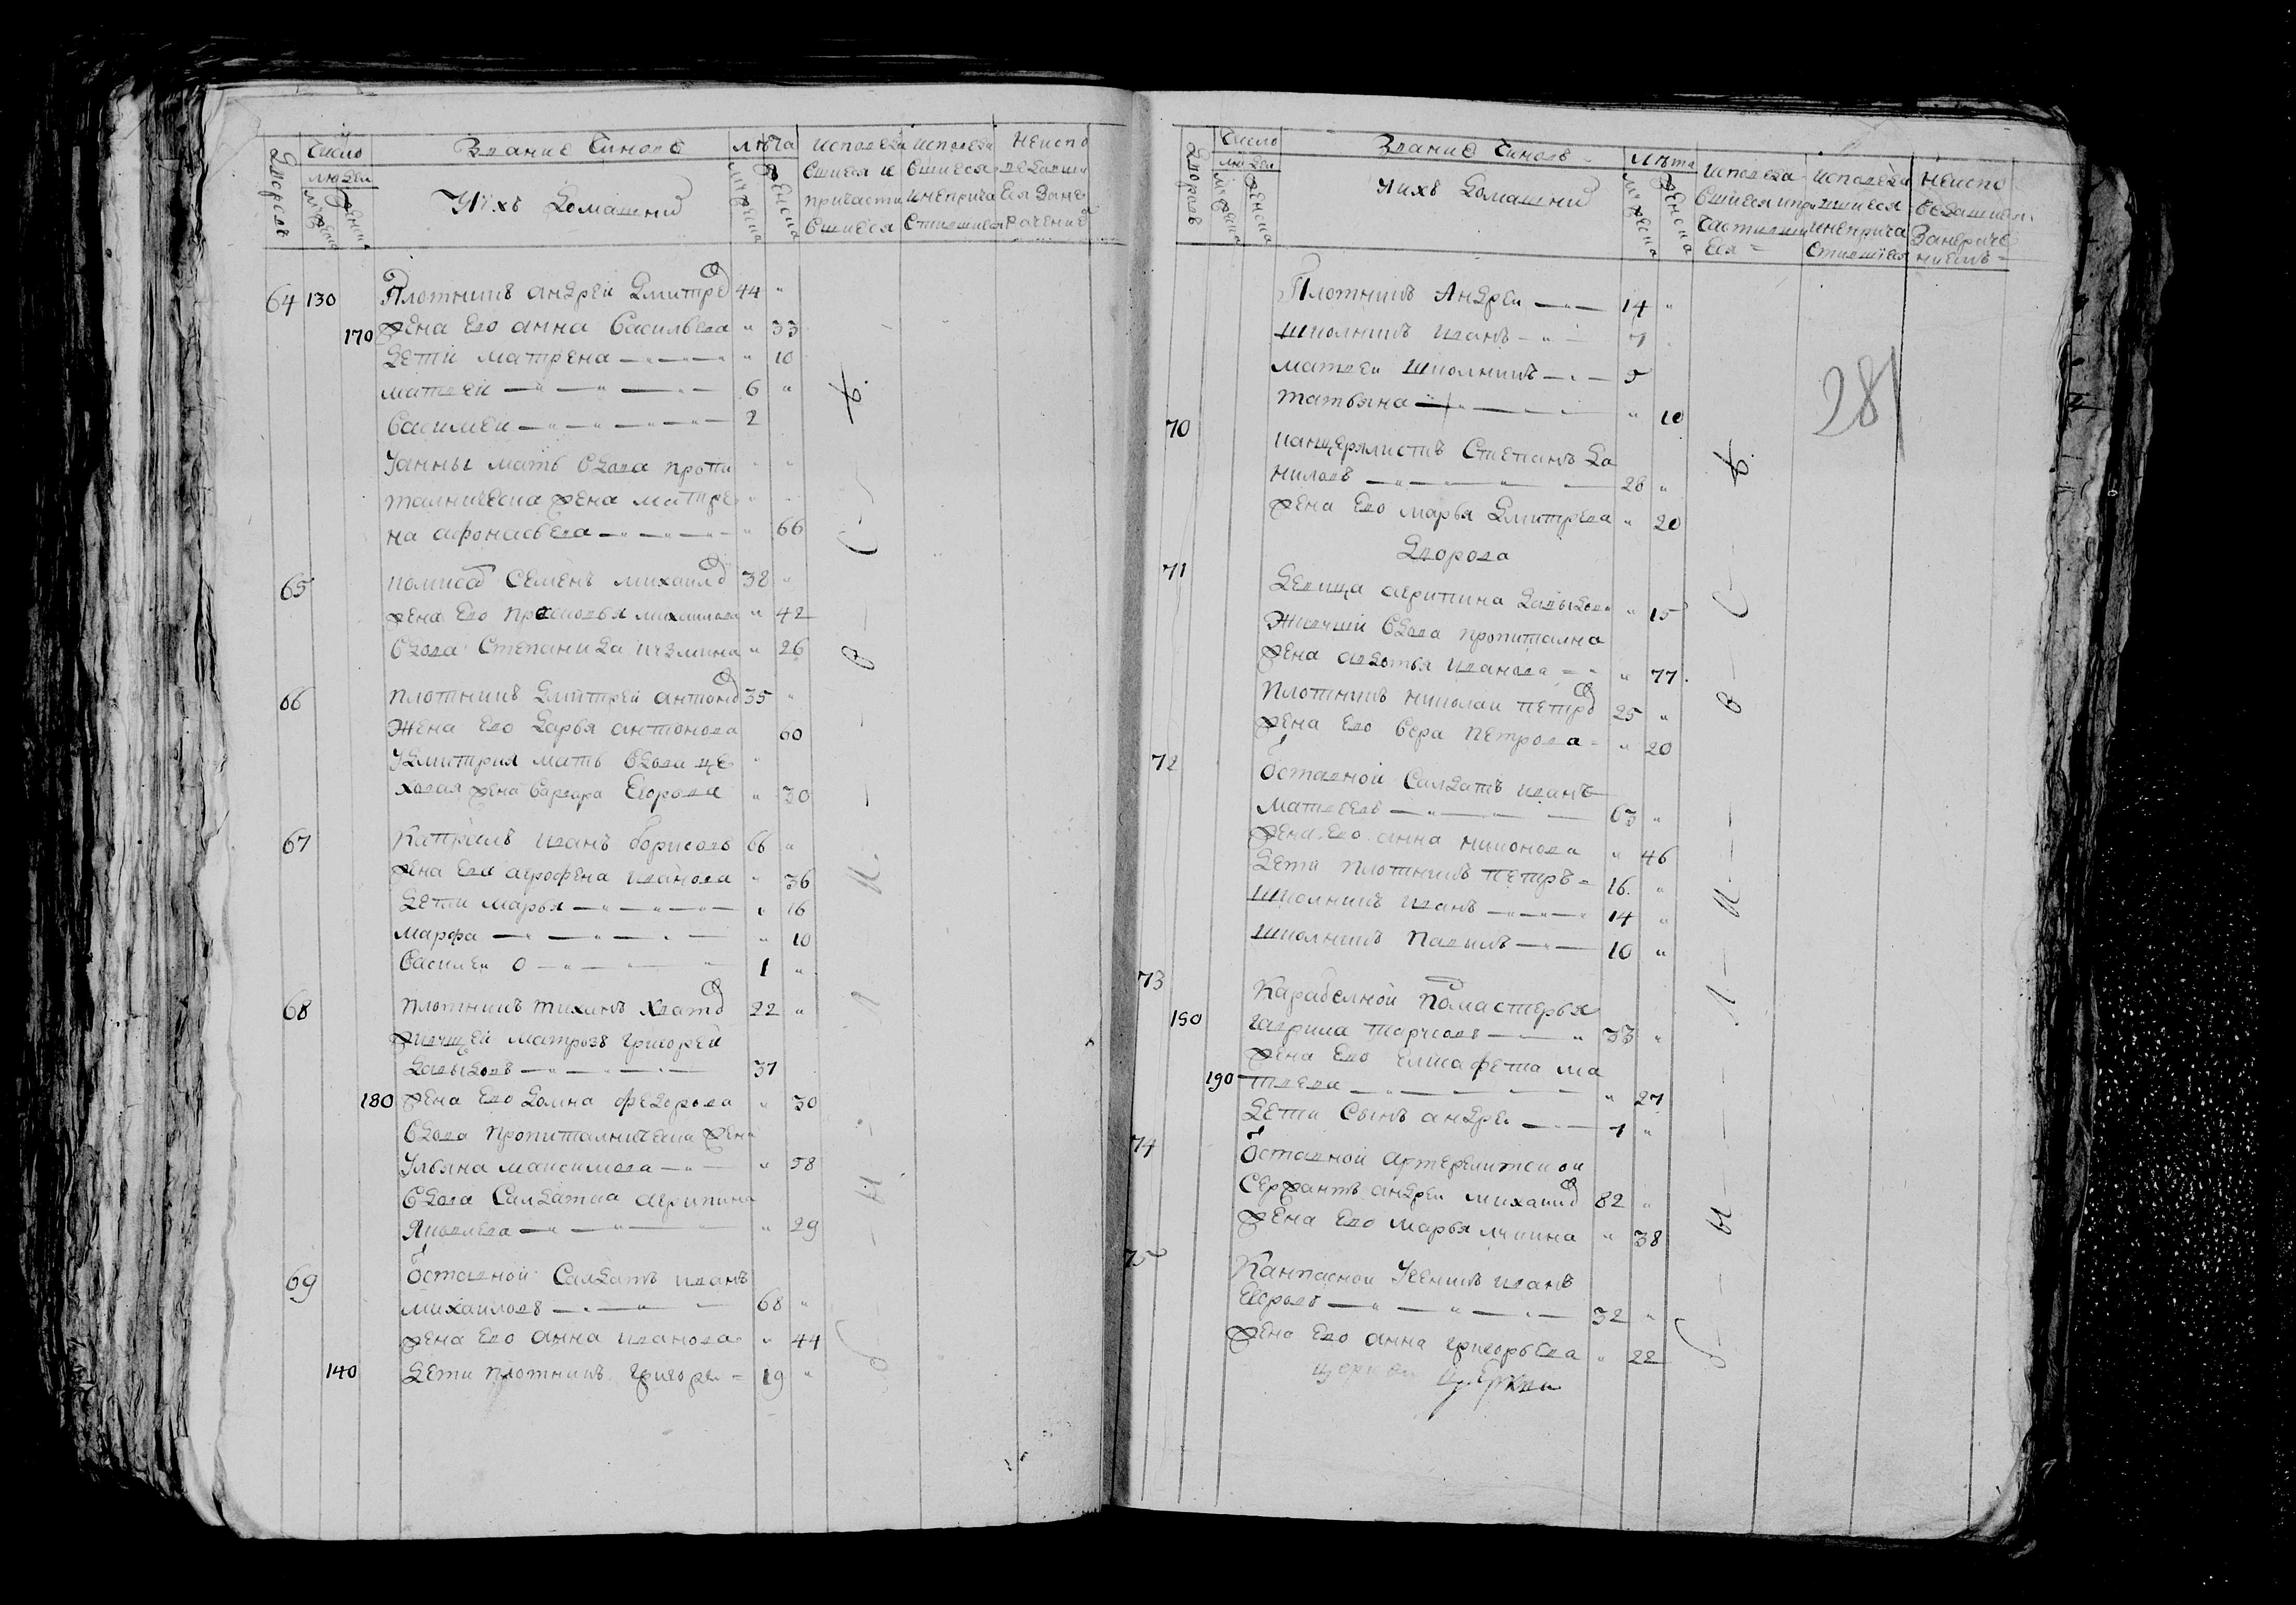 Дворовъ
Число
людей
мужеска
женска
Звание Чиновъ
Ихъ домашни
лѣта
мужеска
женска
исповеда
вшиеся и
причасти
вшиеся
исповеда
вшиеся
инеприча
стившиеся
неиспо
ведавши
еся Зане
рачение
64 130 Плотникъ андреи дмитрев 44 "
170 жена ево анна васильева " 33
дети матрена " 10
матвеи 6 "
василеи 2
У анны мать вдова пропи
талническа жена матре
на афонасьева " 66
65 комисар Семенъ михаилов 38 "
жена ево прасковья михаилова " 42
вдова Степанида кузмина " 26
66 плотникъ дмитреи антонов 35 "
жена ево дарья антонова 60
У дмитрия мать вдова це
ховая жена варвара Егорова " 30
67 Капралъ иванъ борисовъ 66 "
жена ево агрофена иванова " 36
дети марья " 16
марфа " 10
василеи 1 "
68 плотникъ тиханъ хватов 22 "
живущей матрозъ григореи
давыдовъ 37
180 жена ево домна федорова " 30
вдова пропиталническа жена
Ульяна максимова " 58
вдова салдатка агрипина
Яковлева " 29
69 отставной Салдатъ иванъ
михаиловъ 68 "
жена ево анна иванова " 44
140 дети плотникъ григореи 19 "
Дворовъ
Число
людеи
мужеска
женска
Звание Чиновъ
Ихъ домашни
лѣта
мужеска
женска
исповеда
вшиеся и при
частивши
еся
исповеда
вшиеся
инеприча
стившиеся
неиспо
ведавшиеся
Занераче
ниемъ
281
Плотникъ Андреи 14 "
школникъ иванъ 7
матвеи школникъ 5
татьяна " 10
70 канцеряистъ Степанъ да
ниловъ 26 "
жена ево марья дмитрева " 20
дворова
71 девица агрипина давыдова " 15
живущей вдова пропитална
жена авдотья иванова " 77
плотникъ николаи петров 25 "
жена ево вера петрова " 20
72 отставной Салдатъ иванъ
матвеевъ 63 "
жена ево анна никонова " 46
дети плотникъ петръ 16 "
школникъ иванъ 14 "
школникъ павилъ 10 "
73 Карабелной помастерья
150 гаврила 33 "
жена ево елисафета ма
190 твеева " 27
дети Сынъ андреи 7 "
74 отставной артерелитской
Сержантъ андреи михаилов 82 "
жена ево марья лукина " 38
75 Канпасной Ученикъ иванъ
Егоровъ 32 "
жена ево анна григорьева " 22
церкви церкви